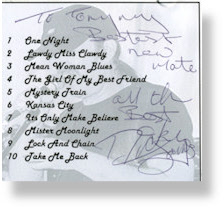 To Tommy
new
mate
1 One Night
2 Lawdy Miss Clawdy
3 Mean Woman Blues
4 The Girl Of My Best Friend
5 Mystery Train
6 Kansas City
7 Its Only Make Believe
8 Mister Moonlight
9 Lock And Chain
10 Take Me Back
all the
Best